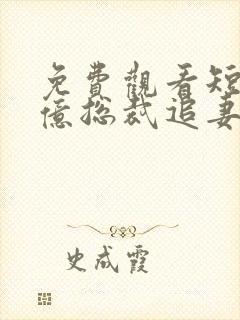 免費觀看短
億总裁追妻
史成霞